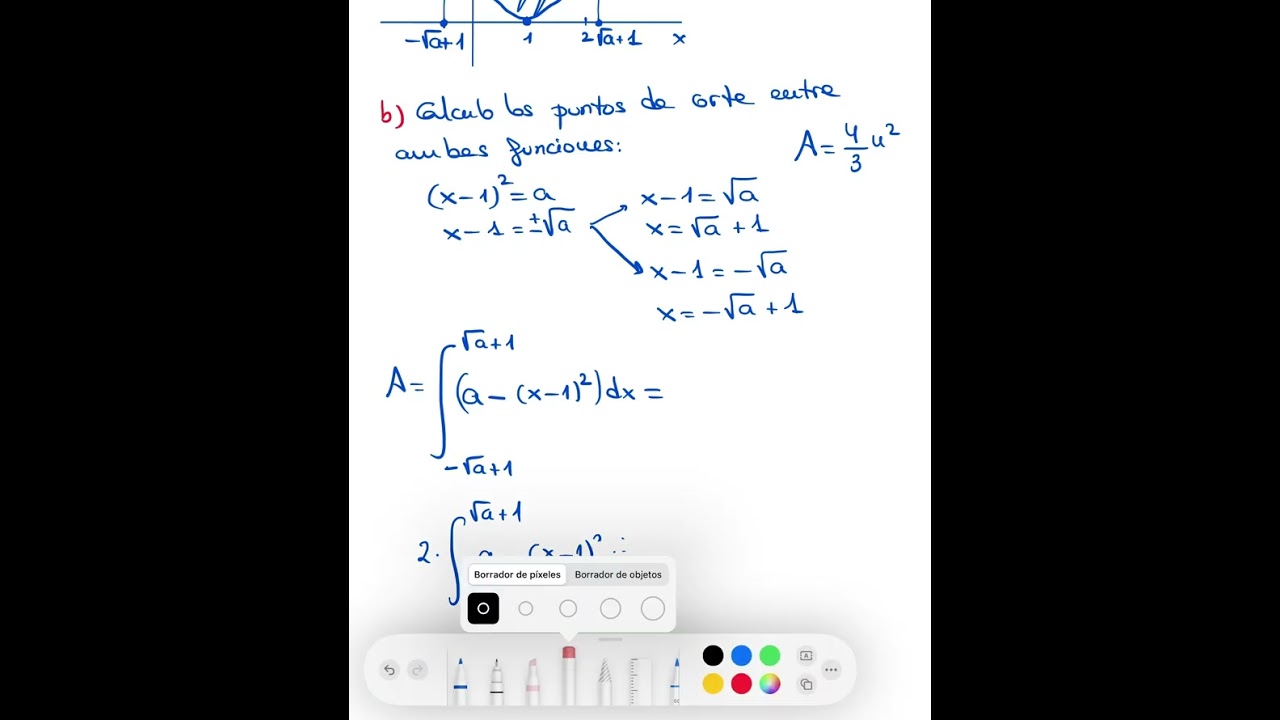 -√a+1 1 2 √a+1 x
b) Calculo los puntos de corte entre
ambas funciones:
A = 4/3 u²
(x-1)² = a
x-1 = ±√a
x-1 = √a
x = √a + 1
x-1 = -√a
x = -√a + 1
√a+1
A = ∫ (a - (x-1)²) dx =
-√a+1
√a+1
2. ∫ a (x-1)²
Borrador de píxeles Borrador de objetos